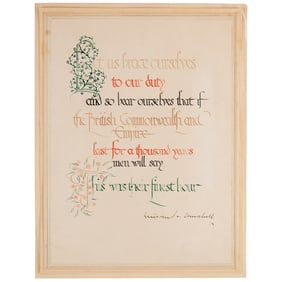 Let us brace ourselves
to our duty
and so bear ourselves that if
the British Commonwealth and
Empire
last for a thousand years
men will say
This was their finest hour
Winston S. Churchill